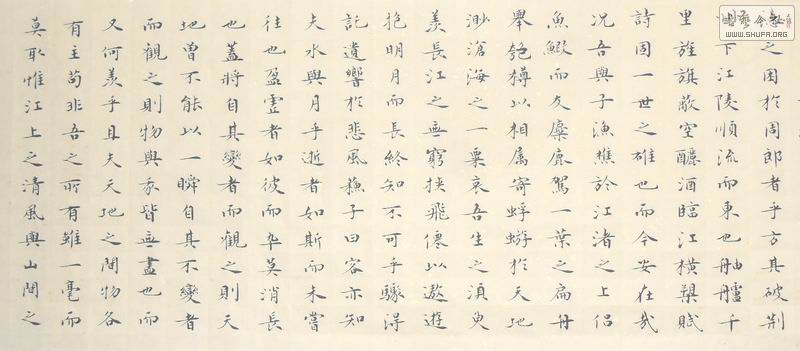 之困於周郎者乎方其破荆
下江陵順流而東也舳艫千
里旌旗蔽空釃酒臨江橫槊賦
詩固一世之雄也而今安在哉
況吾與子漁樵於江渚之上侶
魚鰕而友麋鹿駕一葉之扁舟
舉匏樽以相属寄蜉蝣於天地
渺滄海之一粟哀吾生之湏臾
羨長江之無窮挾飛僊以遨遊
抱明月而長終知不可乎驟得
託遺響於悲風蘇子曰客亦知
夫水與月乎逝者如斯而未嘗
往也盈虛者如彼而卒莫消長
也蓋將自其變者而觀之則天
地曾不能以一瞬自其不變者
而觀之則物與我皆無盡也而
又何羨乎且夫天地之間物各
有主苟非吾之所有雖一毫而
莫取惟江上之清風與山間之
WWW.SHUFA.ORG